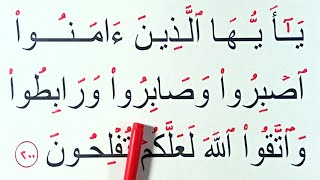 يَـٰٓأَيُّهَا ٱلَّذِينَ ءَامَنُوا۟
ٱصْبِرُوا۟ وَصَابِرُوا۟ وَرَابِطُوا۟
وَٱتَّقُوا۟ ٱللَّهَ لَعَلَّكُمْ تُفْلِحُونَ ٢٠٠